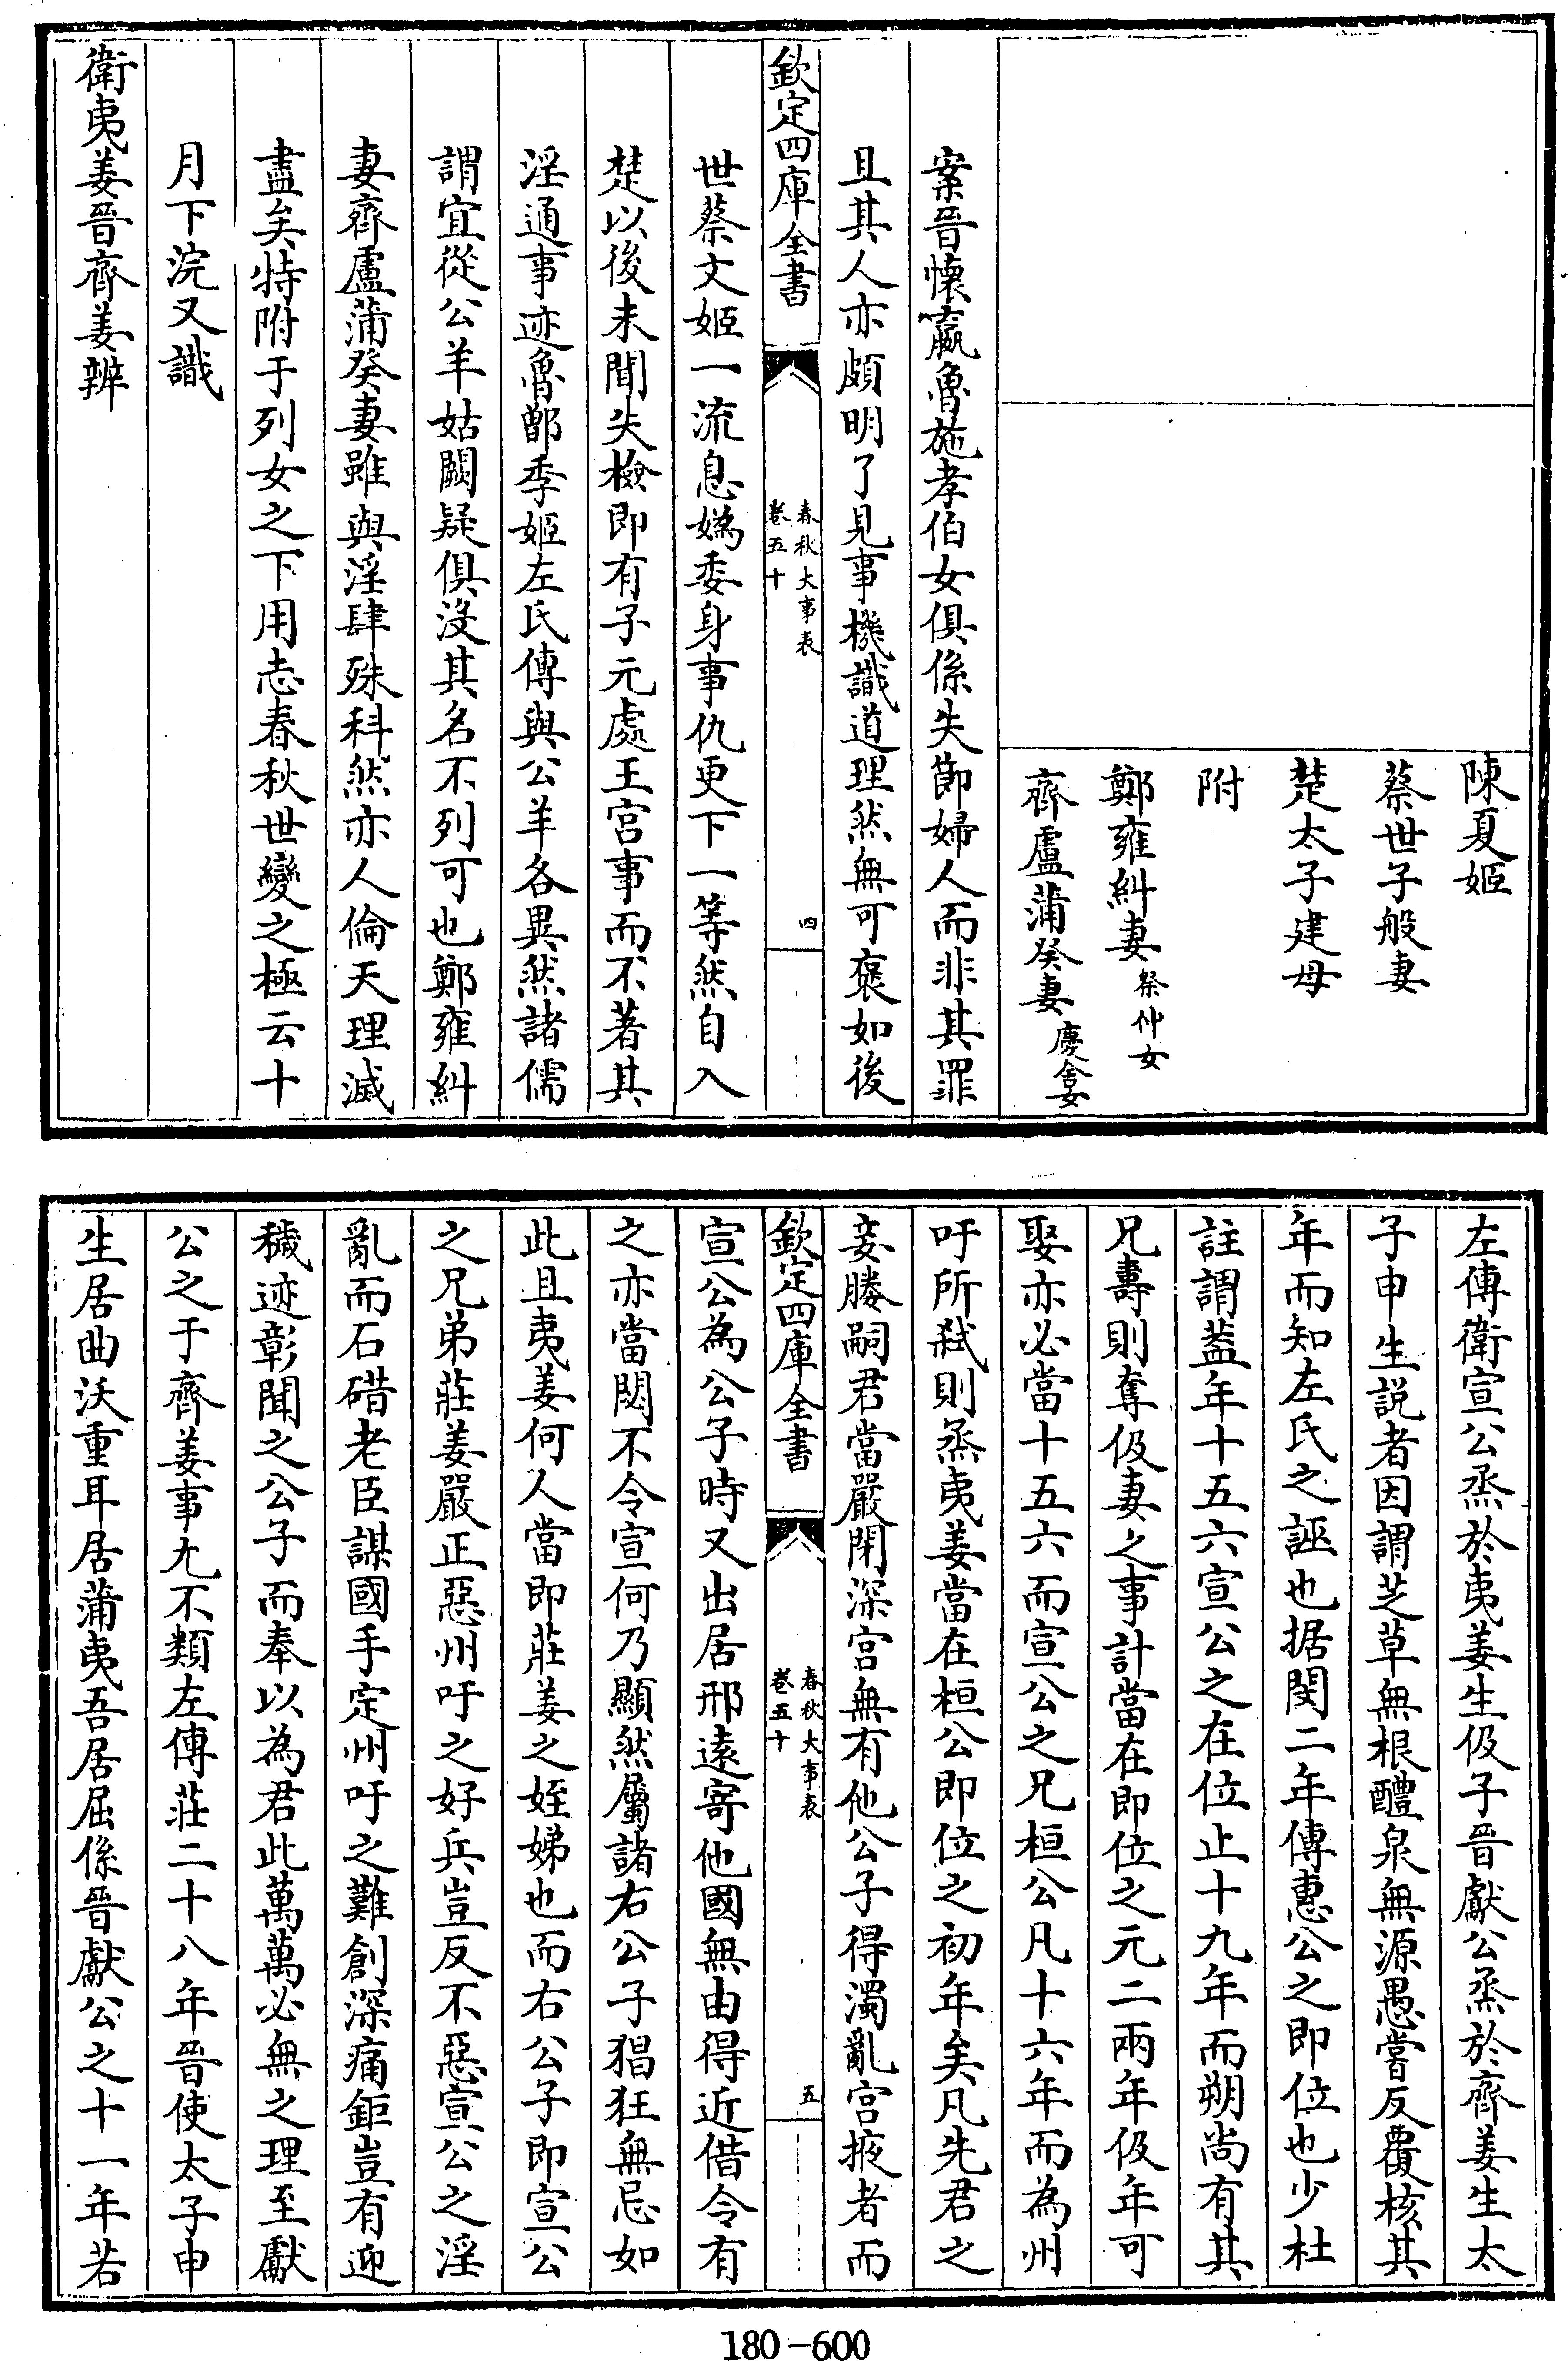 陳夏姬
蔡世子般妻
楚太子建母
附
鄭雍糾妻祭仲女
齊盧蒲癸妻慶舍女
案晉懷嬴魯施孝伯女俱係失節婦人而非其罪
且其人亦頗明了見事機識道理然無可褒如後
欽定四庫全書
春秋大事表
卷五十
四
世蔡文姬一流息媯委身事仇更下一等然自入
楚以後未聞失檢即有子元處王宫事而不著其
淫通事迹魯鄫季姬左氏傳與公羊各異然諸儒
謂宜從公羊姑闕疑俱沒其名不列可也鄭雍糾
妻齊盧蒲癸妻雖與淫肆殊科然亦人倫天理滅
盡矣特附于列女之下用志春秋世變之極云十
月下浣又識
衛夷姜晉齊姜辨
左傳衛宣公烝於夷姜生伋子晉獻公烝於齊姜生太
子申生説者因謂芝草無根醴泉無源愚嘗反覆核其
年而知左氏之誣也据閔二年傳惠公之即位也少杜
註謂葢年十五六宣公之在位止十九年而朔尚有其
兄壽則奪伋妻之事計當在即位之元二兩年伋年可
娶亦必當十五六而宣公之兄桓公凡十六年而為州
吁所弒則烝夷姜當在桓公即位之初年矣凡先君之
妾媵嗣君當嚴閉深宫無有他公子得濁亂宫掖者而
欽定四庫全書
春秋大事表
卷五十
五
宣公為公子時又出居邢遠寄他國無由得近借令有
之亦當閟不令宣何乃顯然屬諸右公子猖狂無忌如
此且夷姜何人當即莊姜之姪娣也而右公子即宣公
之兄弟莊姜嚴正惡州吁之好兵豈反不惡宣公之淫
亂而石碏老臣謀國手定州吁之難創深痛鉅豈有迎
穢迹彰聞之公子而奉以為君此萬萬必無之理至獻
公之于齊姜事尤不類左傳莊二十八年晉使太子申
生居曲沃重耳居蒲夷吾居屈係晉獻公之十一年若
180-600